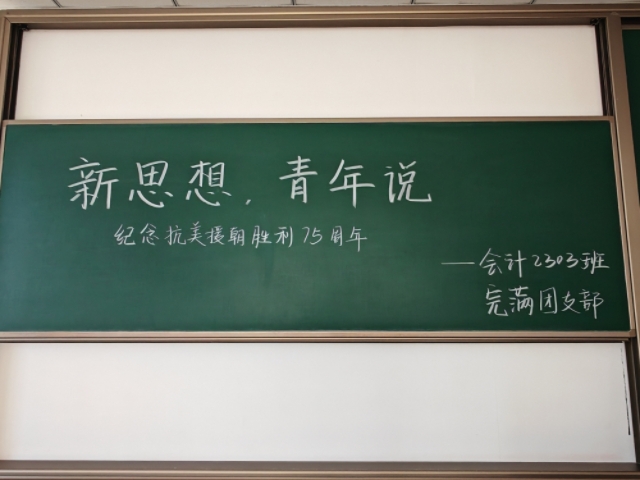 新思想，青年说
纪念抗美援朝胜利75周年
——会计2303班
完满团支部